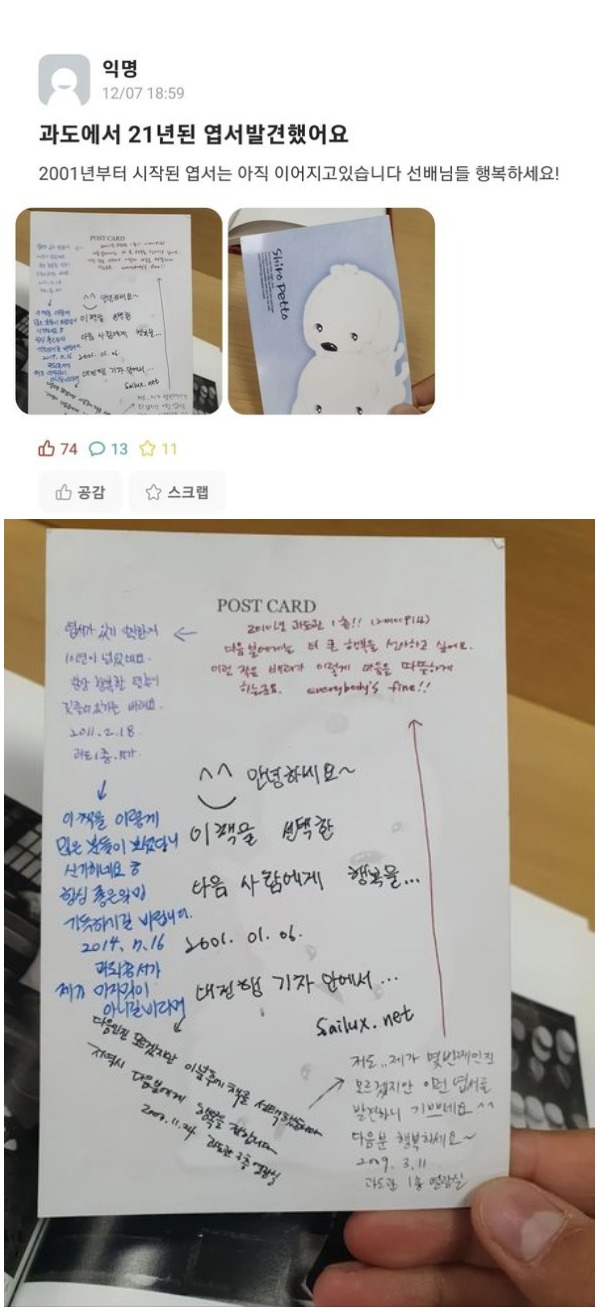 익명
12/07 18:59
과도에서 21년된 엽서발견했어요
2001년부터 시작된 엽서는 아직 이어지고있습니다 선배님들 행복하세요!
Shiro Petto
74 13 11
공감 스크랩
POST CARD
2010년 과도관 1층!!
다음 분에게는 더 큰 행복을 선사하고 싶어요.
이런 작은 배려가 이렇게 마음을 따뜻하게
하는군요. everybody's fine!!
엽서가 있기 시작한지
10년이 넘었네요.
항상 행복한 일들이
바래요.
2011. 2. 18.
과도 1층.
이 책을 이렇게
많은 분들이 보셨다니
신기하네요
항상 좋은일만
가득하시길 바랍니다.
2014. 7. 16
과학도서가
제가 마지막이
아니길 바라며
^^ 안녕하세요~
이 책을 선택한
다음 사람에게 행복을...
2001. 01. 06.
대전행 기차 안에서...
Sailux.net
다음인진 모르겠지만 이날 책을 선택
저역시 다음분에게 행복을 전합니다
2009. 11. 24 과도관 3층 열람실
저도.. 제가 몇번째인진
모르겠지만 이런 엽서를
발견하니 기쁘네요^^
다음분 행복하세요~
2009. 3. 11
과도관 1층 열람실